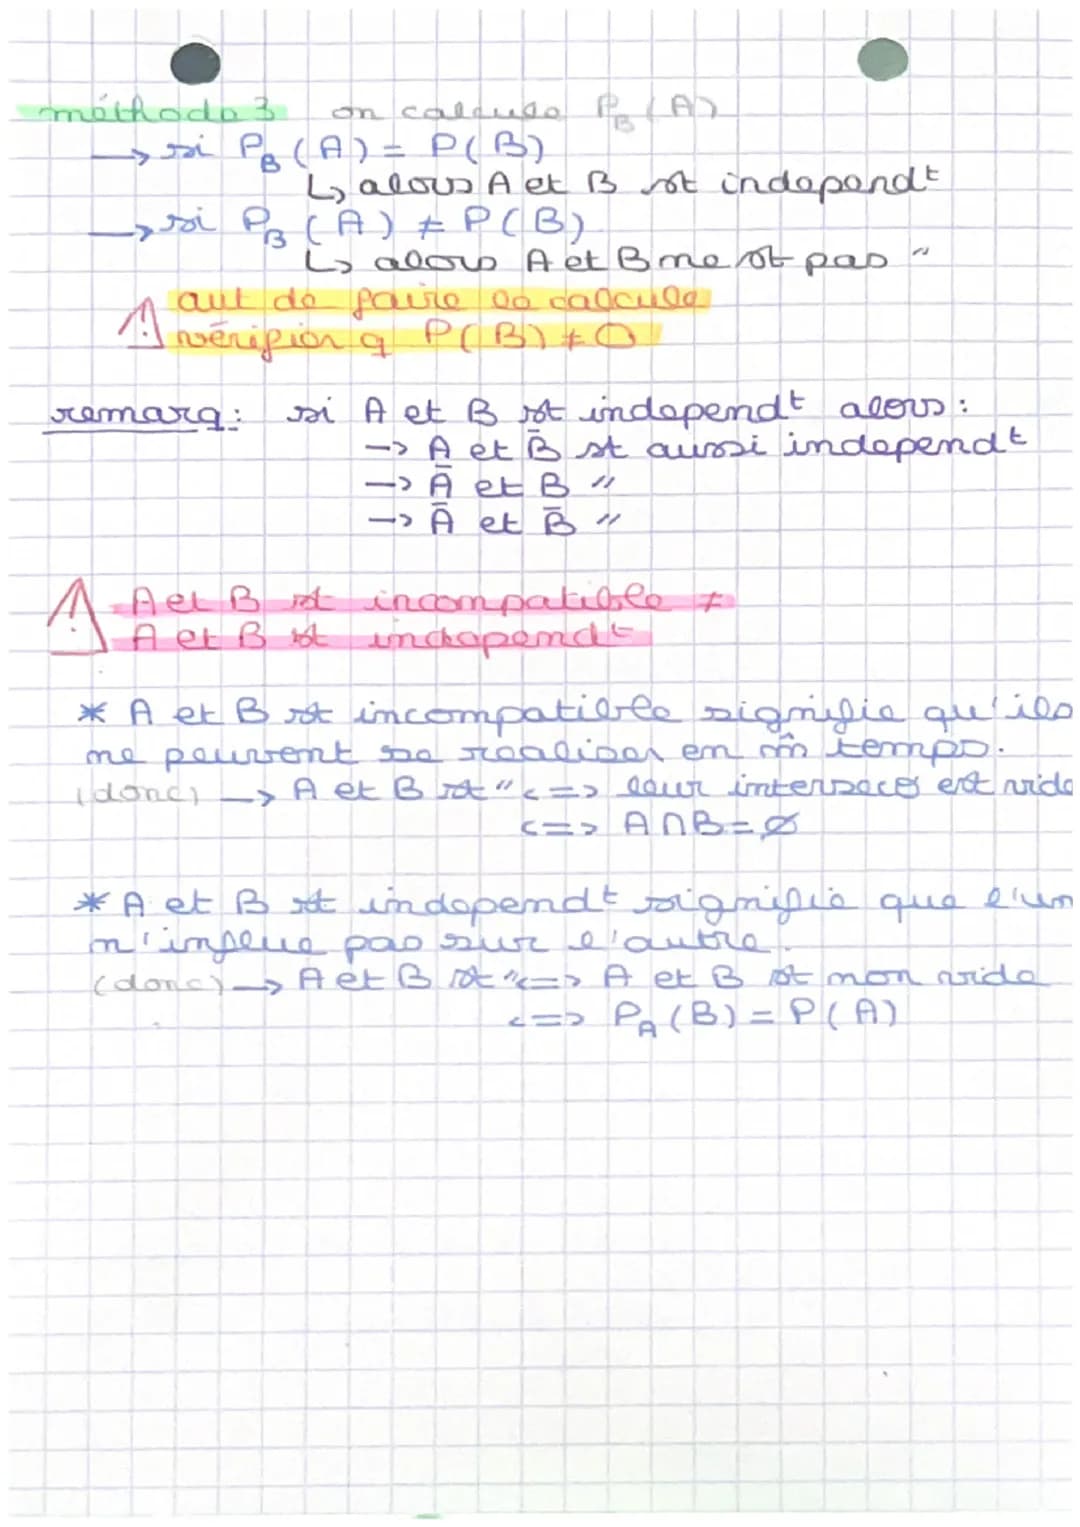 méthode 3 on calcule P_B (A)
→ si P_B (A) = P(B)
↳ alors A et B st independt
→ si P_B (A) ≠ P(B)
↳ alors A et B ne st pas "
⚠ avt de faire le calcule
vérifier q P(B) ≠ 0
remarq: si A et B st independt alors :
→ A et B̄ st aussi independt
→ Ā et B "
→ Ā et B̄ "
⚠ A et B st incompatible ≠
A et B st independt
* A et B st incompatible signifie qu'ils
ne peuvent se realiser en m̂ temps.
(donc) → A et B st " <=> leur intersecº est vide
<=> A∩B=∅
* A et B st independt signifie que l'un
n'influe pas sur l'autre.
(donc) → A et B st " <=> A et B st non vide
<=> P_A (B) = P(A)